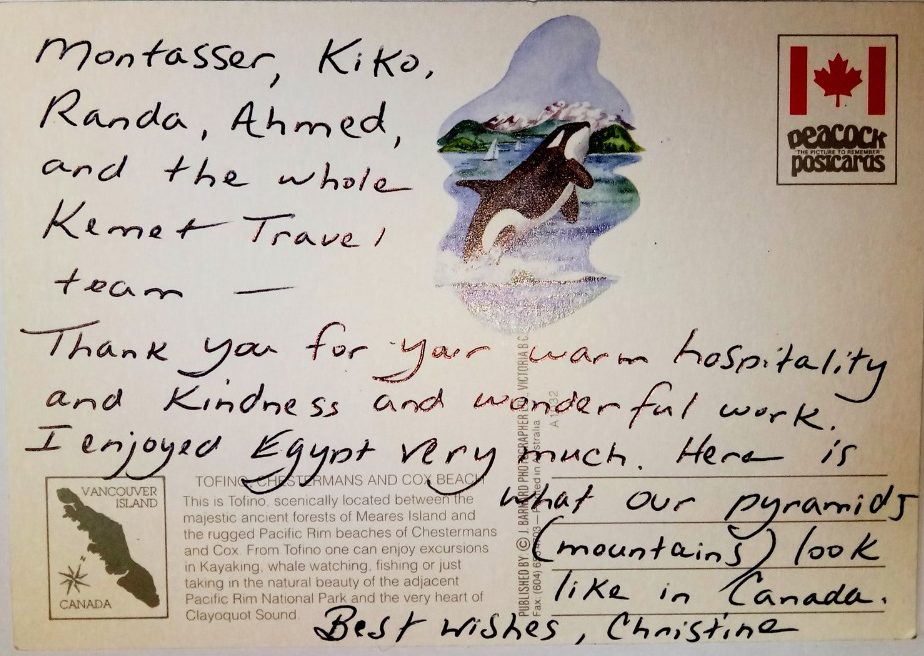 Montasser, Kiko,
Randa, Ahmed,
and the whole
Kemet Travel
team —
Thank you for your warm hospitality
and kindness and wonderful work.
I enjoyed Egypt very much. Here is
what our pyramids
(mountains) look
like in Canada.
Best wishes, Christine
peacock
THE PICTURE TO REMEMBER
postcards
VANCOUVER
ISLAND
CANADA
TOFINO, CHESTERMANS AND COX BEACH
This is Tofino, scenically located between the
majestic ancient forests of Meares Island and
the rugged Pacific Rim beaches of Chestermans
and Cox. From Tofino one can enjoy excursions
in Kayaking, whale watching, fishing or just
taking in the natural beauty of the adjacent
Pacific Rim National Park and the very heart of
Clayoquot Sound.
PUBLISHED BY © J. BARNARD PHOTOGRAPHER VICTORIA B.C.
Fax: (604) Printed in Australia